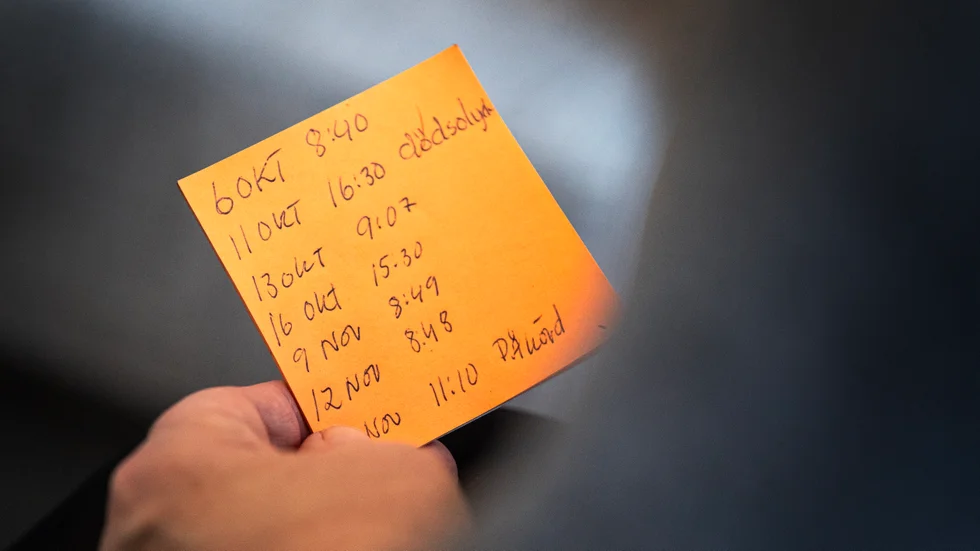 6 OKT 8:40
11 OKT 16:30 dödsolyck
13 OKT 9:07
16 OKT 15.30
9 NOV 8:49
12 NOV 8:48
NOV 11:10 Påkörd